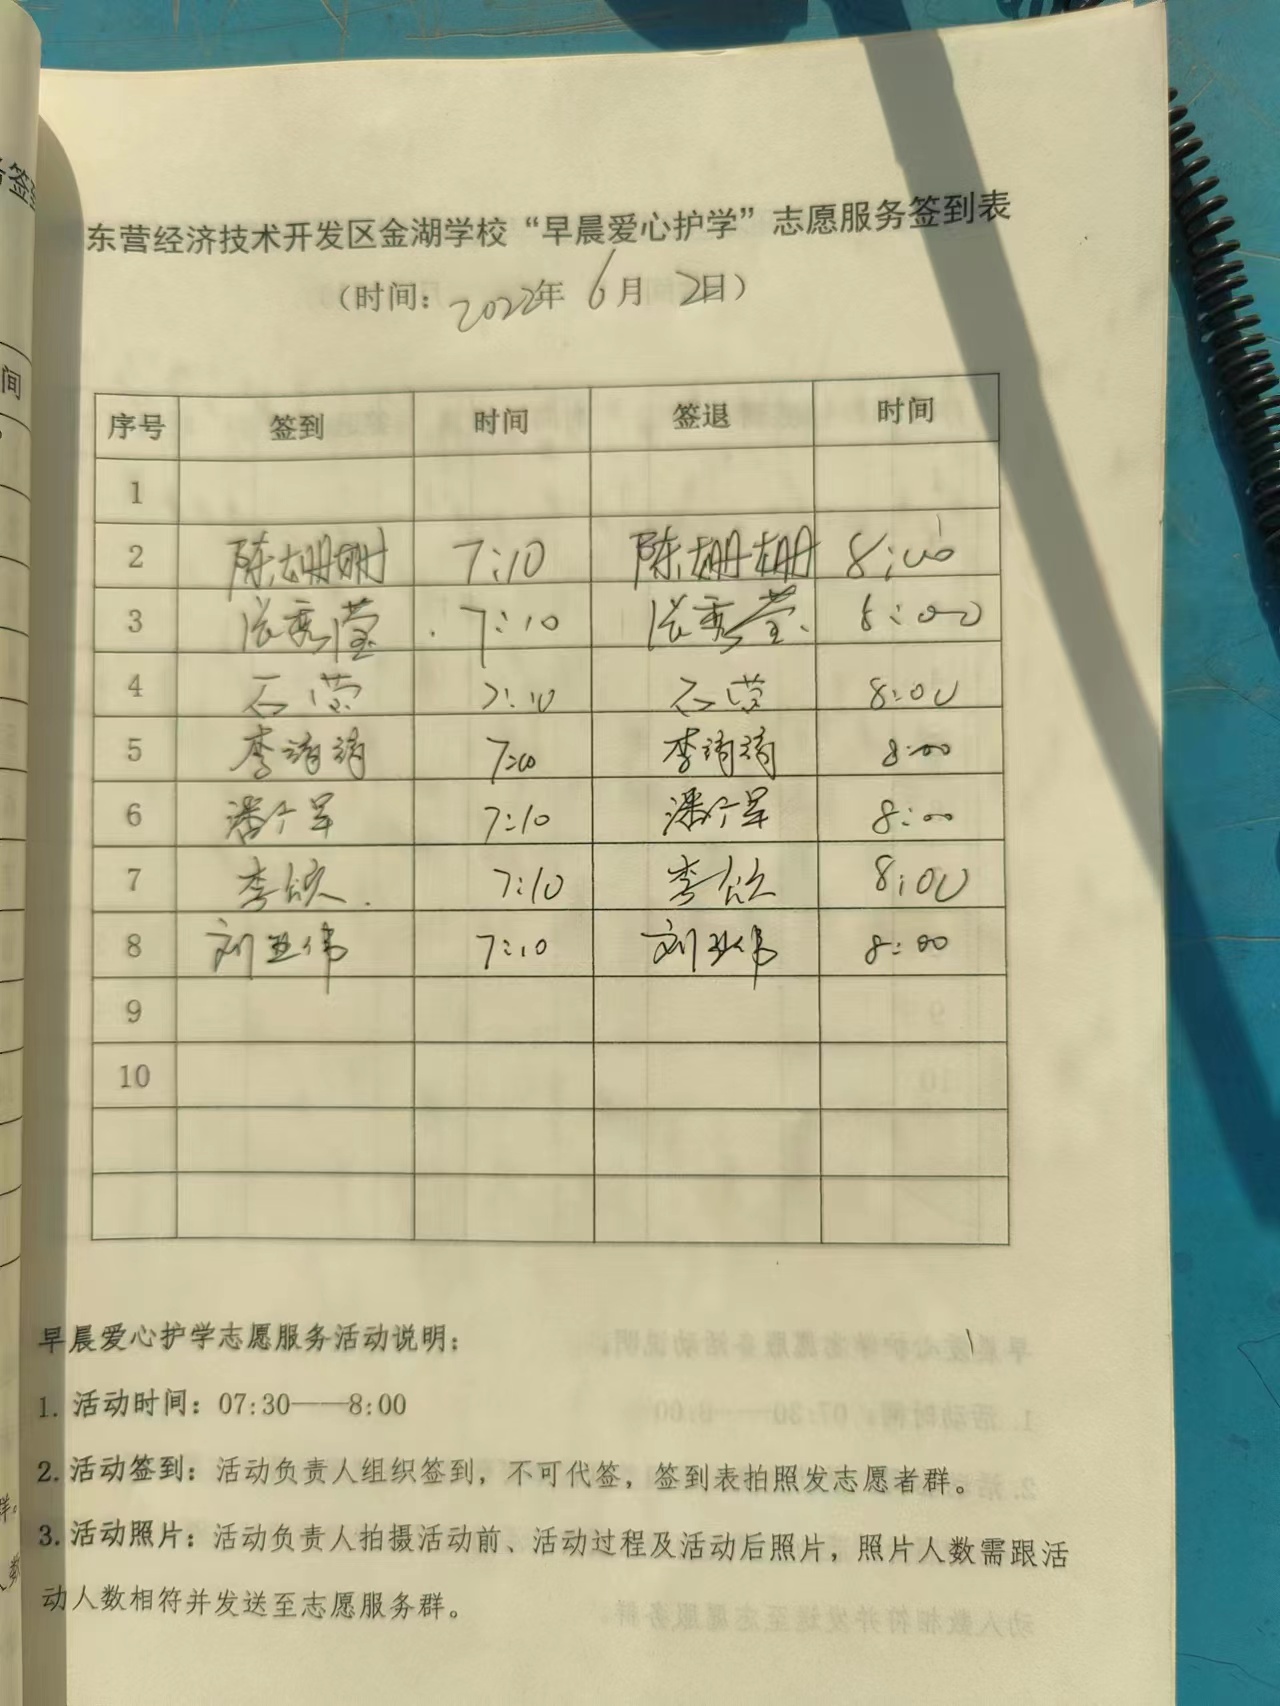 东营经济技术开发区金湖学校“早晨爱心护学”志愿服务签到表
（时间：2022年 6月 2日）
序号 签到 时间 签退 时间
1
2 陈姗姗 7:10 陈姗姗 8:00
3 张秀莹 7:10 张秀莹 8:00
4 石营 7:10 石营 8:00
5 李清清 7:10 李清清 8:00
6 潘军 7:10 潘军 8:00
7 李欣 7:10 李欣 8:00
8 刘亚伟 7:10 刘亚伟 8:00
9
10
早晨爱心护学志愿服务活动说明：
1. 活动时间：07:30——8:00
2. 活动签到：活动负责人组织签到，不可代签，签到表拍照发志愿者群。
3. 活动照片：活动负责人拍摄活动前、活动过程及活动后照片，照片人数需跟活
动人数相符并发送至志愿服务群。